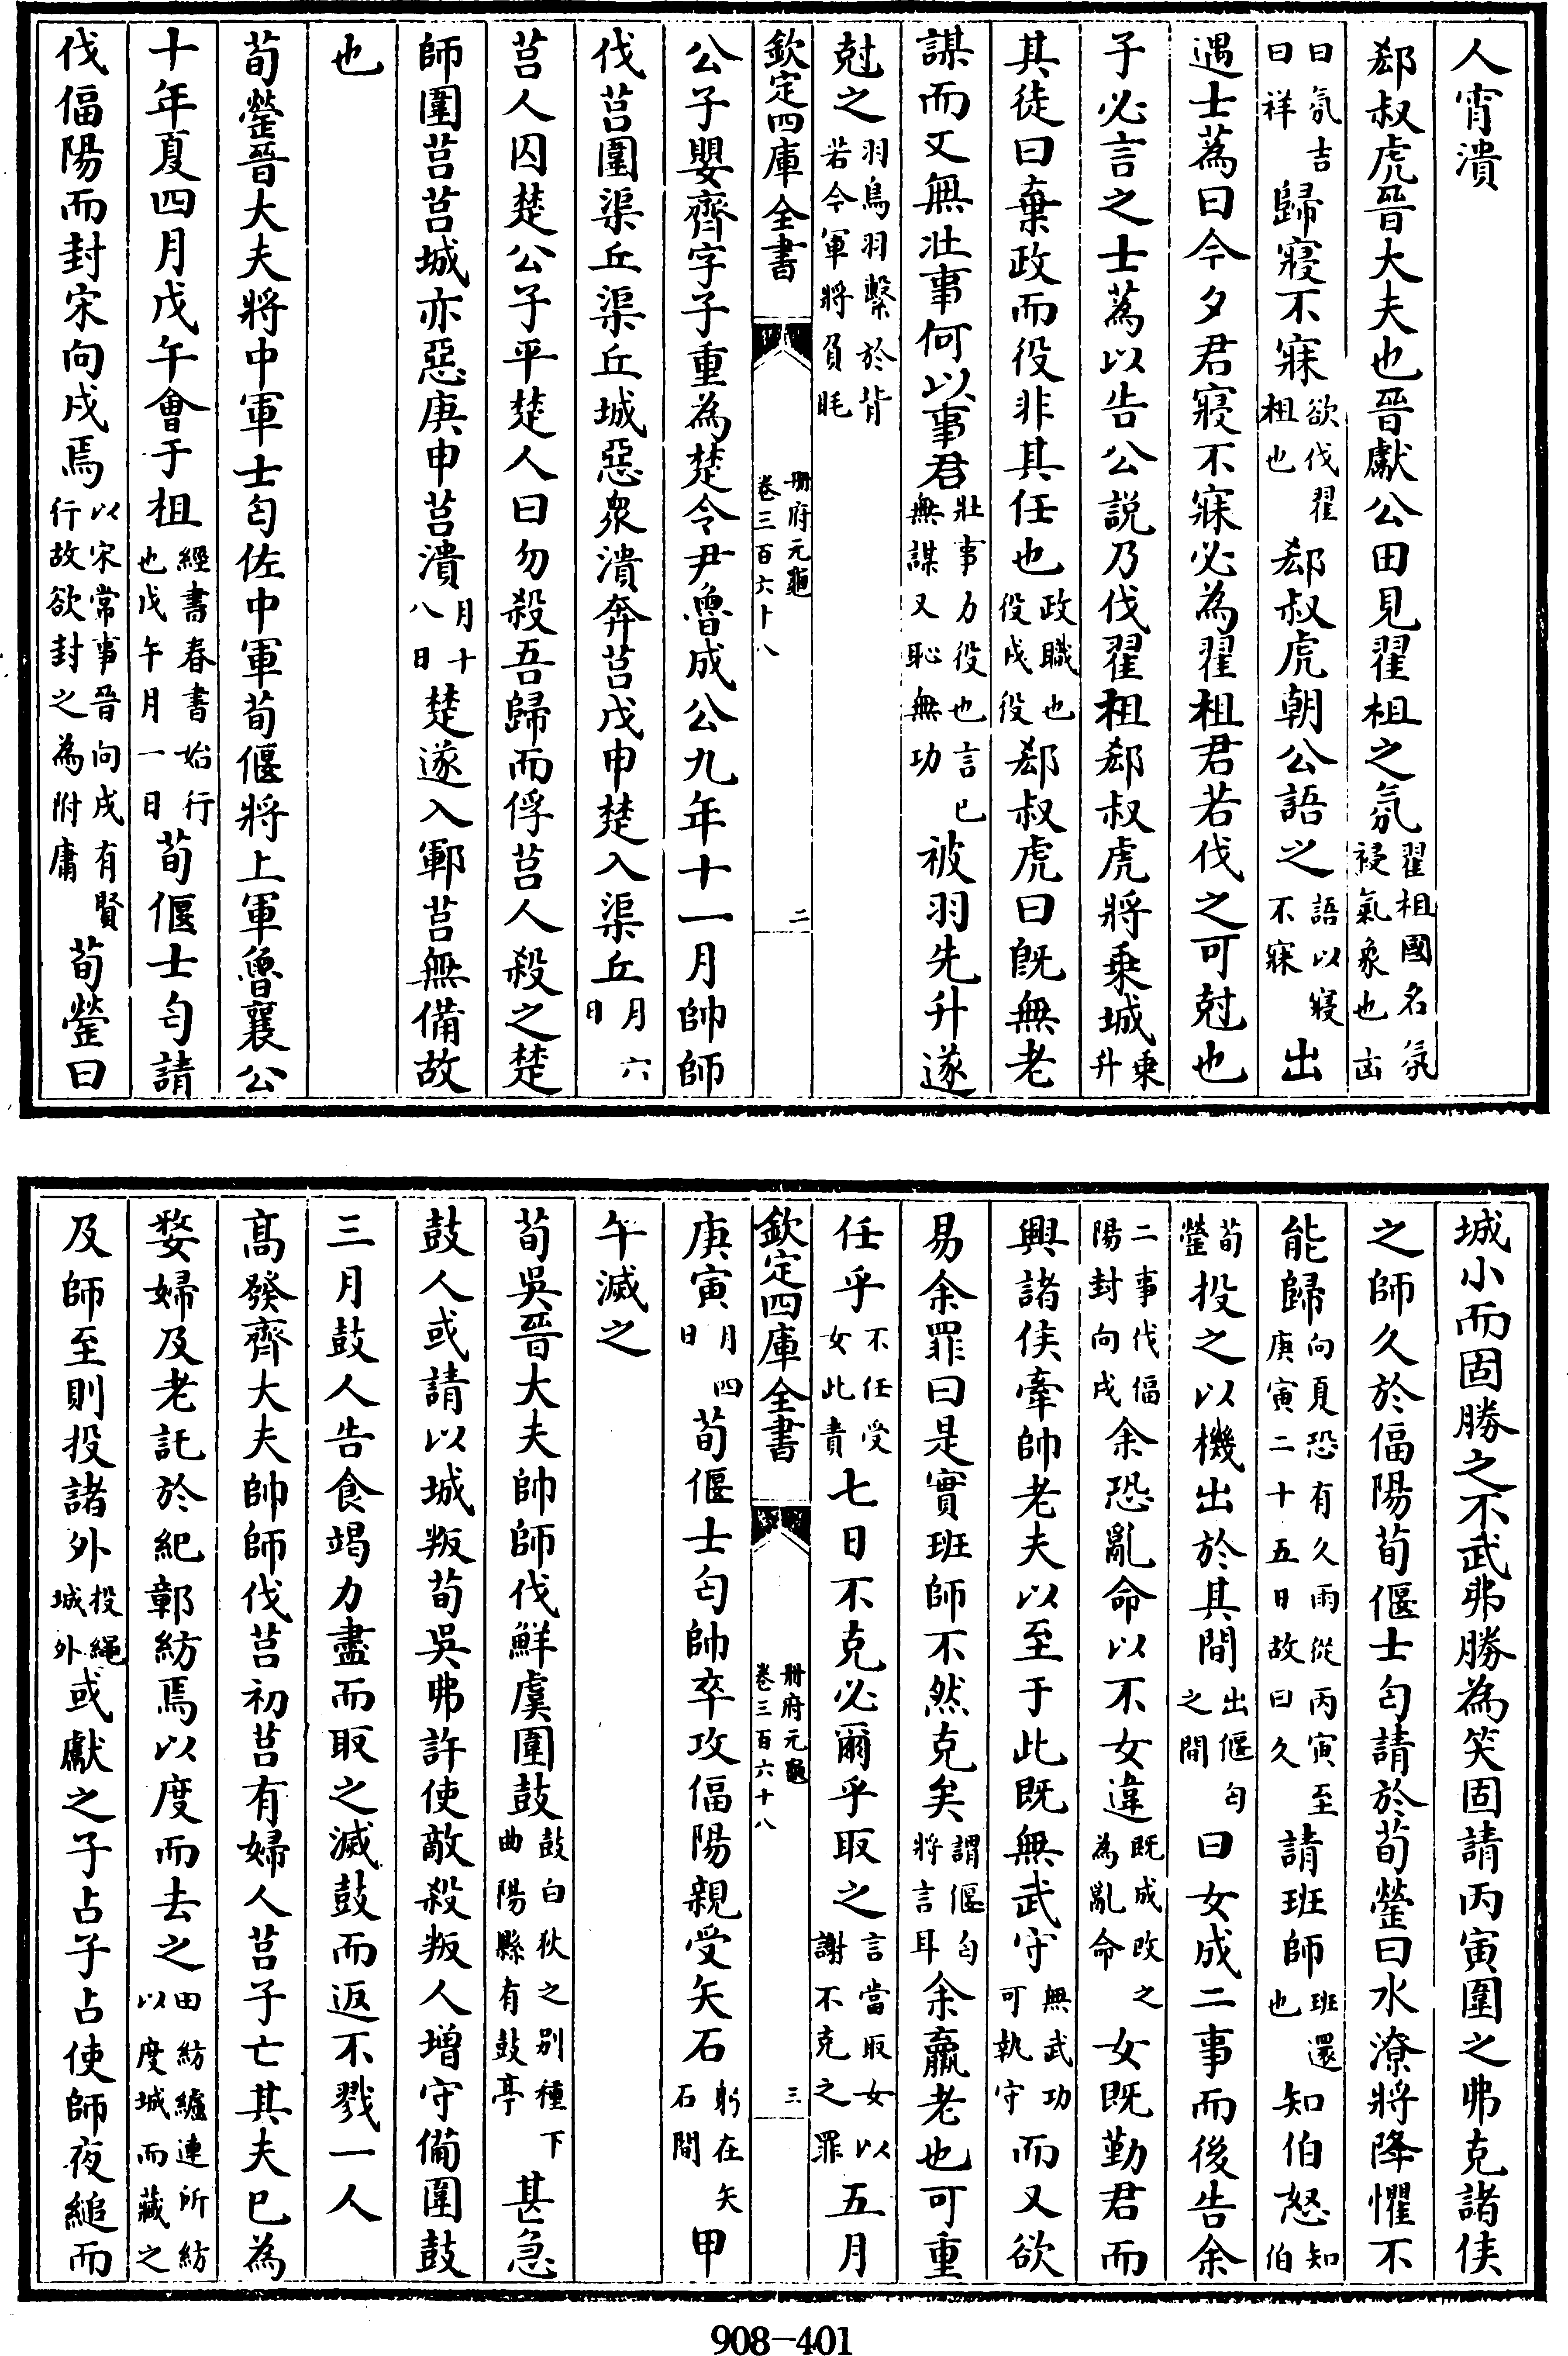 人宵潰
郄叔虎晉大夫也晉獻公田見翟柤之氛翟柤國名氛祲氣象也凶
曰氛吉曰祥歸寢不寐欲伐翟柤也郄叔虎朝公語之語以寢不寐出
遇士蒍曰今夕君寢不寐必為翟柤君若伐之可尅也
子必言之士蒍以告公説乃伐翟柤郄叔虎將乗城乗升
其徒曰棄政而役非其任也政職也役戍役郄叔虎曰既無老
謀而又無壯事何以事君壯事力役也言已無謀又恥無功被羽先升遂
尅之羽鳥羽繫於背若今軍將負眊
欽定四庫全書
冊府元龜
卷三百六十八
二
公子嬰齊字子重為楚令尹魯成公九年十一月帥師
伐莒圍渠丘渠丘城惡衆潰奔莒戊申楚入渠丘月六日
莒人囚楚公子平楚人曰勿殺吾歸而俘莒人殺之楚
師圍莒莒城亦惡庚申莒潰月十八日楚遂入鄆莒無備故
也
荀罃晉大夫將中軍士匄佐中軍荀偃將上軍魯襄公
十年夏四月戊午會于柤經書春書始行也戊午月一日荀偃士匄請
伐偪陽而封宋向戌焉以宋常事晉向戌有賢行故欲封之為附庸荀罃曰
城小而固勝之不武弗勝為笑固請丙寅圍之弗克諸侯
之師久於偪陽荀偃士匄請於荀罃曰水潦將降懼不
能歸向夏恐有久雨從丙寅至庚寅二十五日故曰久請班師班還也知伯怒知伯
荀罃投之以機出於其間出偃匄之間曰女成二事而後告余
二事伐偪陽封向戌余恐亂命以不女違既成改之為亂命女既勤君而
興諸侯牽帥老夫以至于此既無武守無武功可執守而又欲
易余罪曰是實班師不然克矣謂偃匄將言耳余羸老也可重
任乎不任受女此責七日不克必爾乎取之言當取女以謝不克之罪五月
欽定四庫全書
冊府元龜
卷三百六十八
三
庚寅月四日荀偃士匄帥卒攻偪陽親受矢石躬在矢石間甲
午滅之
荀吳晉大夫帥師伐鮮虞圍鼓鼓白狄之別種下曲陽縣有鼓亭甚急
鼓人或請以城叛荀吳弗許使敵殺叛人增守備圍鼓
三月鼓人告食竭力盡而取之滅鼓而返不戮一人
高發齊大夫帥師伐莒初莒有婦人莒子亡其夫已為
嫠婦及老託於紀鄣紡焉以度而去之田紡纑連所紡以度城而藏之
及師至則投諸外投繩城外或獻之子占子占使師夜縋而
908-401